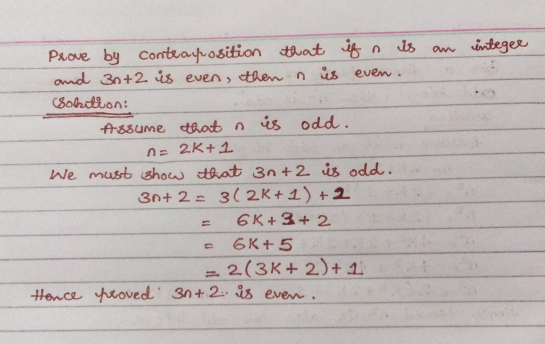 Prove by contraposition that if n is an integer
and 3n+2 is even, then n is even.
Solution:
Assume that n is odd.
n = 2K+1
We must show that 3n+2 is odd.
3n+2 = 3(2K+1)+2
= 6K+3+2
= 6K+5
= 2(3K+2)+1
Hence proved 3n+2 is even.